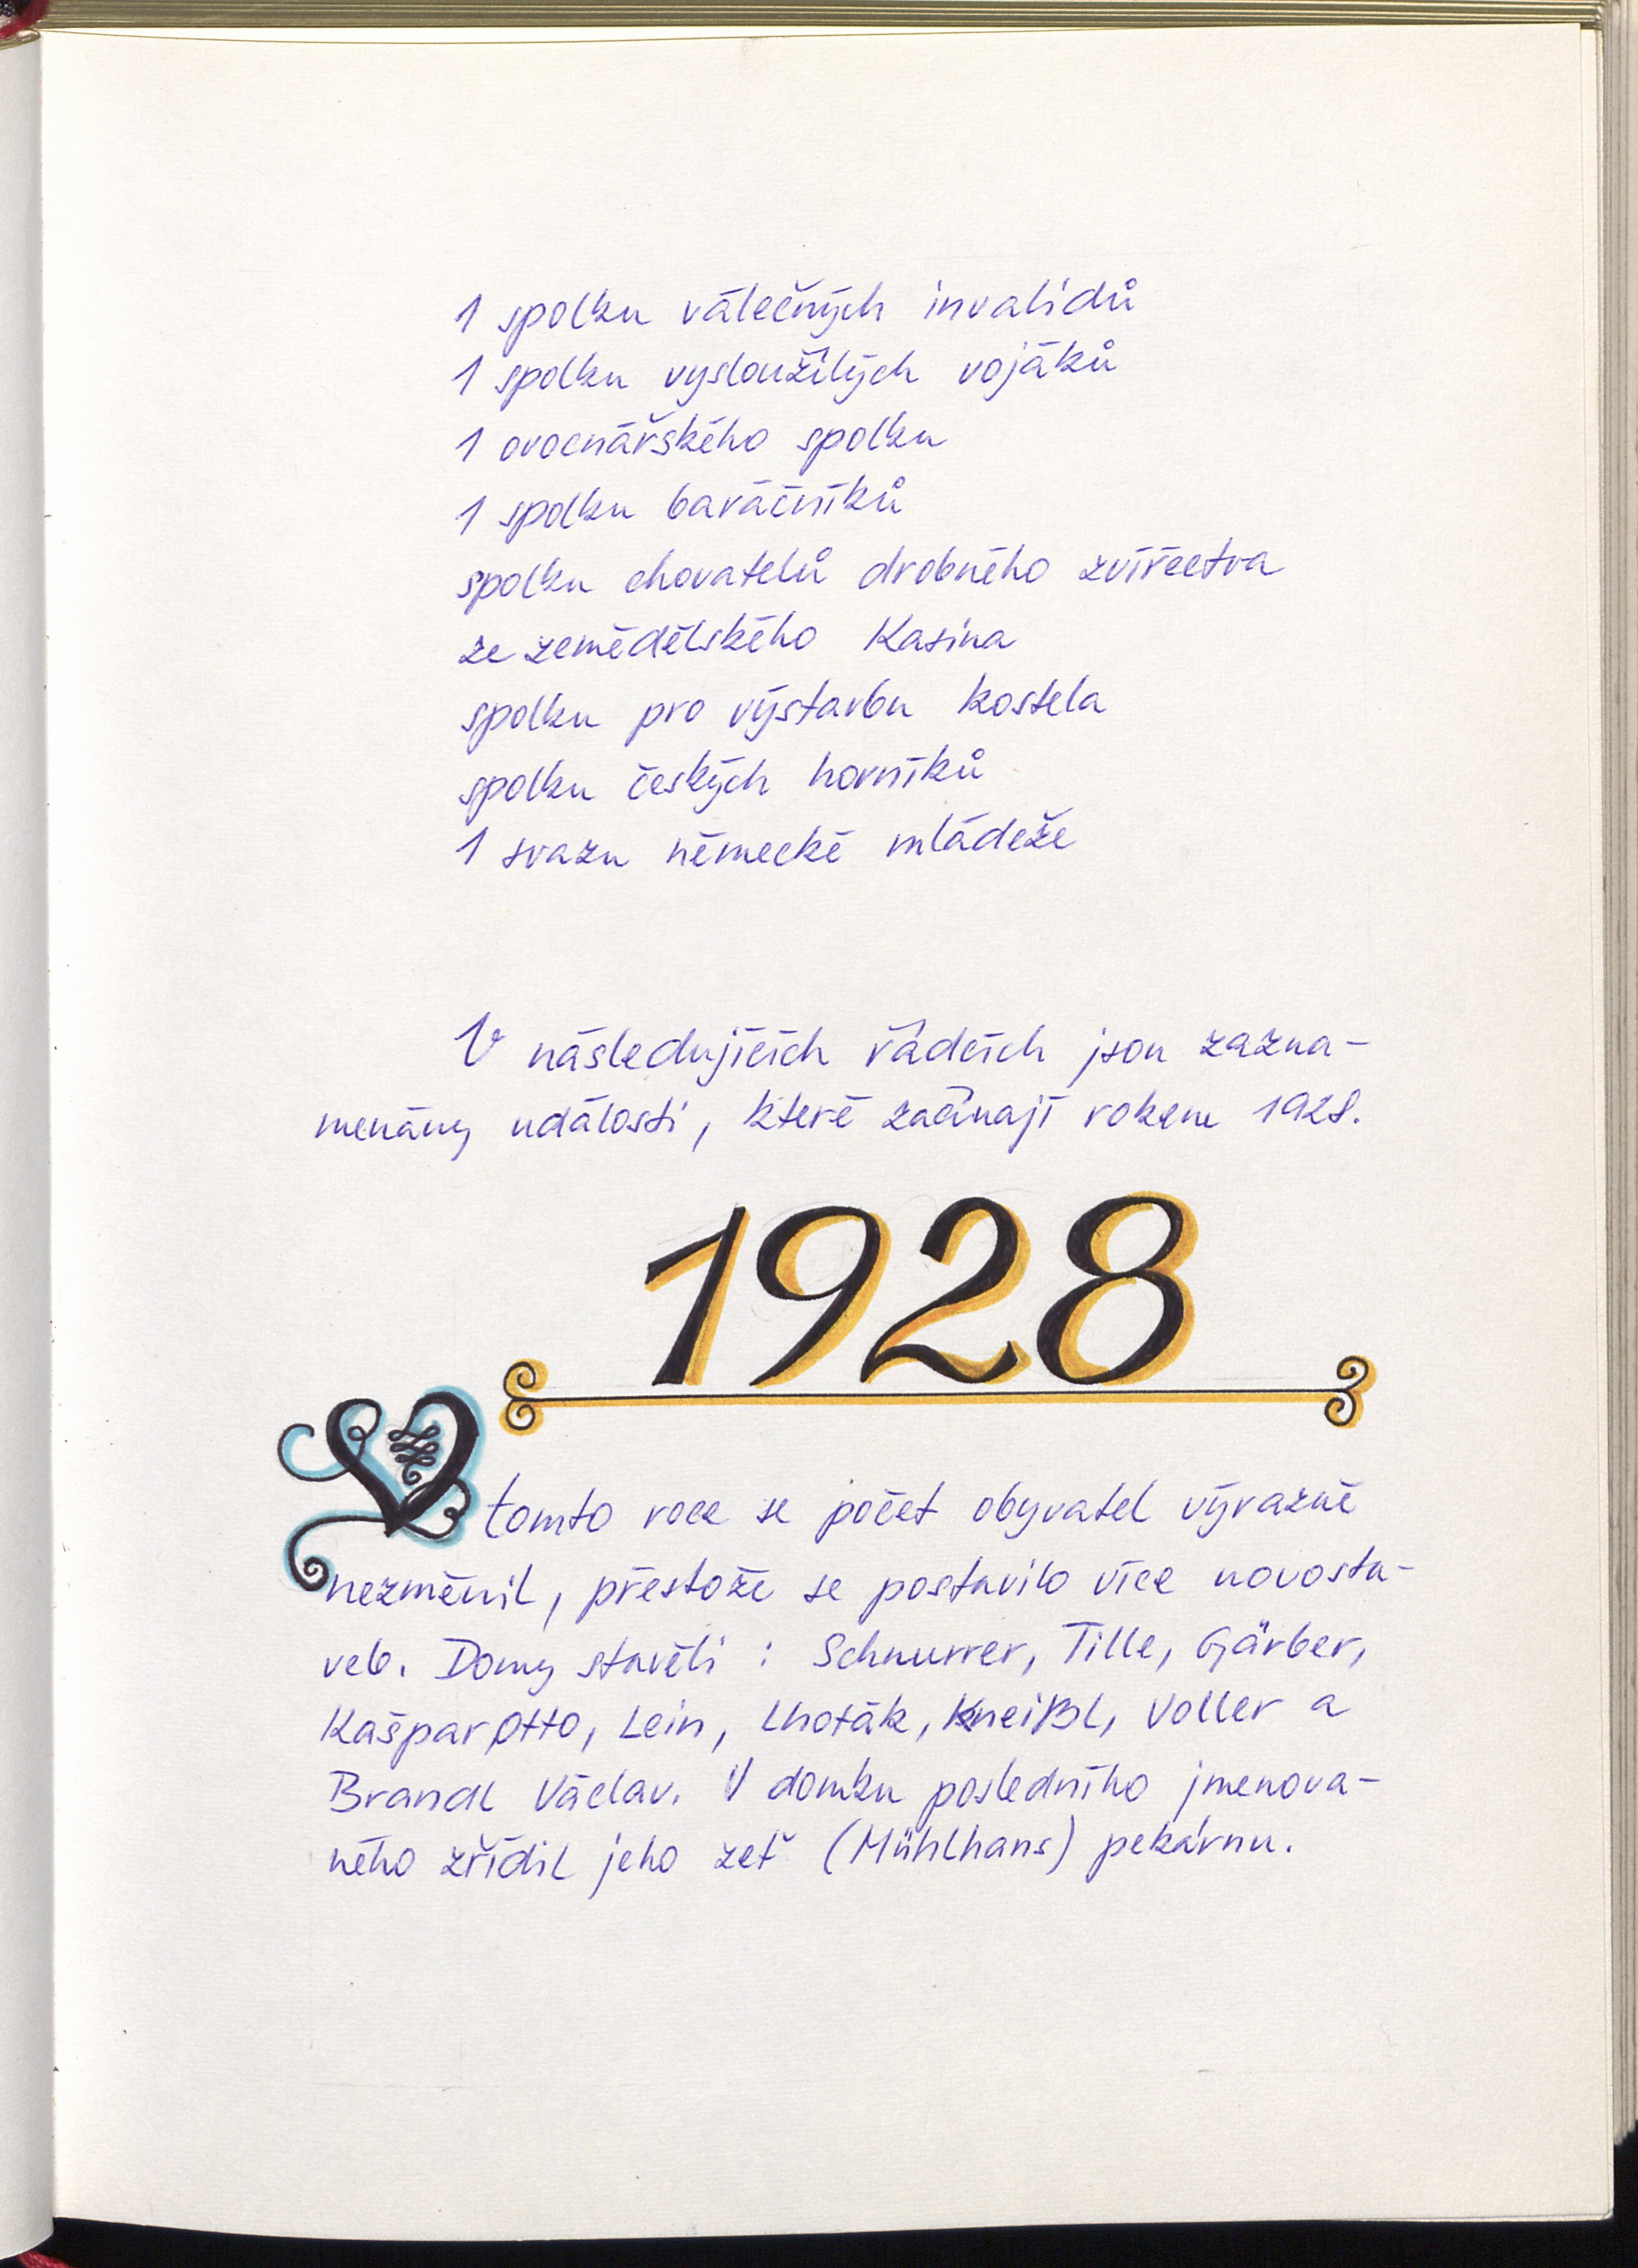 1 spolku válečných invalidů
1 spolku vysloužilých vojáků
1 ovocnářského spolku
1 spolku baráčníků
spolku chovatelů drobného zvířectva
ze zemědělského Kasina
spolku pro výstavbu kostela
spolku českých horníků
1 svazu německé mládeže
V následujících řádcích jsou zazna-
menány události, které začínají rokem 1928.
1928
V tomto roce se počet obyvatel výrazně
nezměnil, přestože se postavilo více novosta-
veb. Domy stavěli : Schnurrer, Tille, Gärber,
Kašpar Otto, Lein, Lhoták, Kneißl, Voller a
Brandl Václav. V domku posledního jmenova-
ného zřídil jeho zeť (Mühlhans) pekárnu.